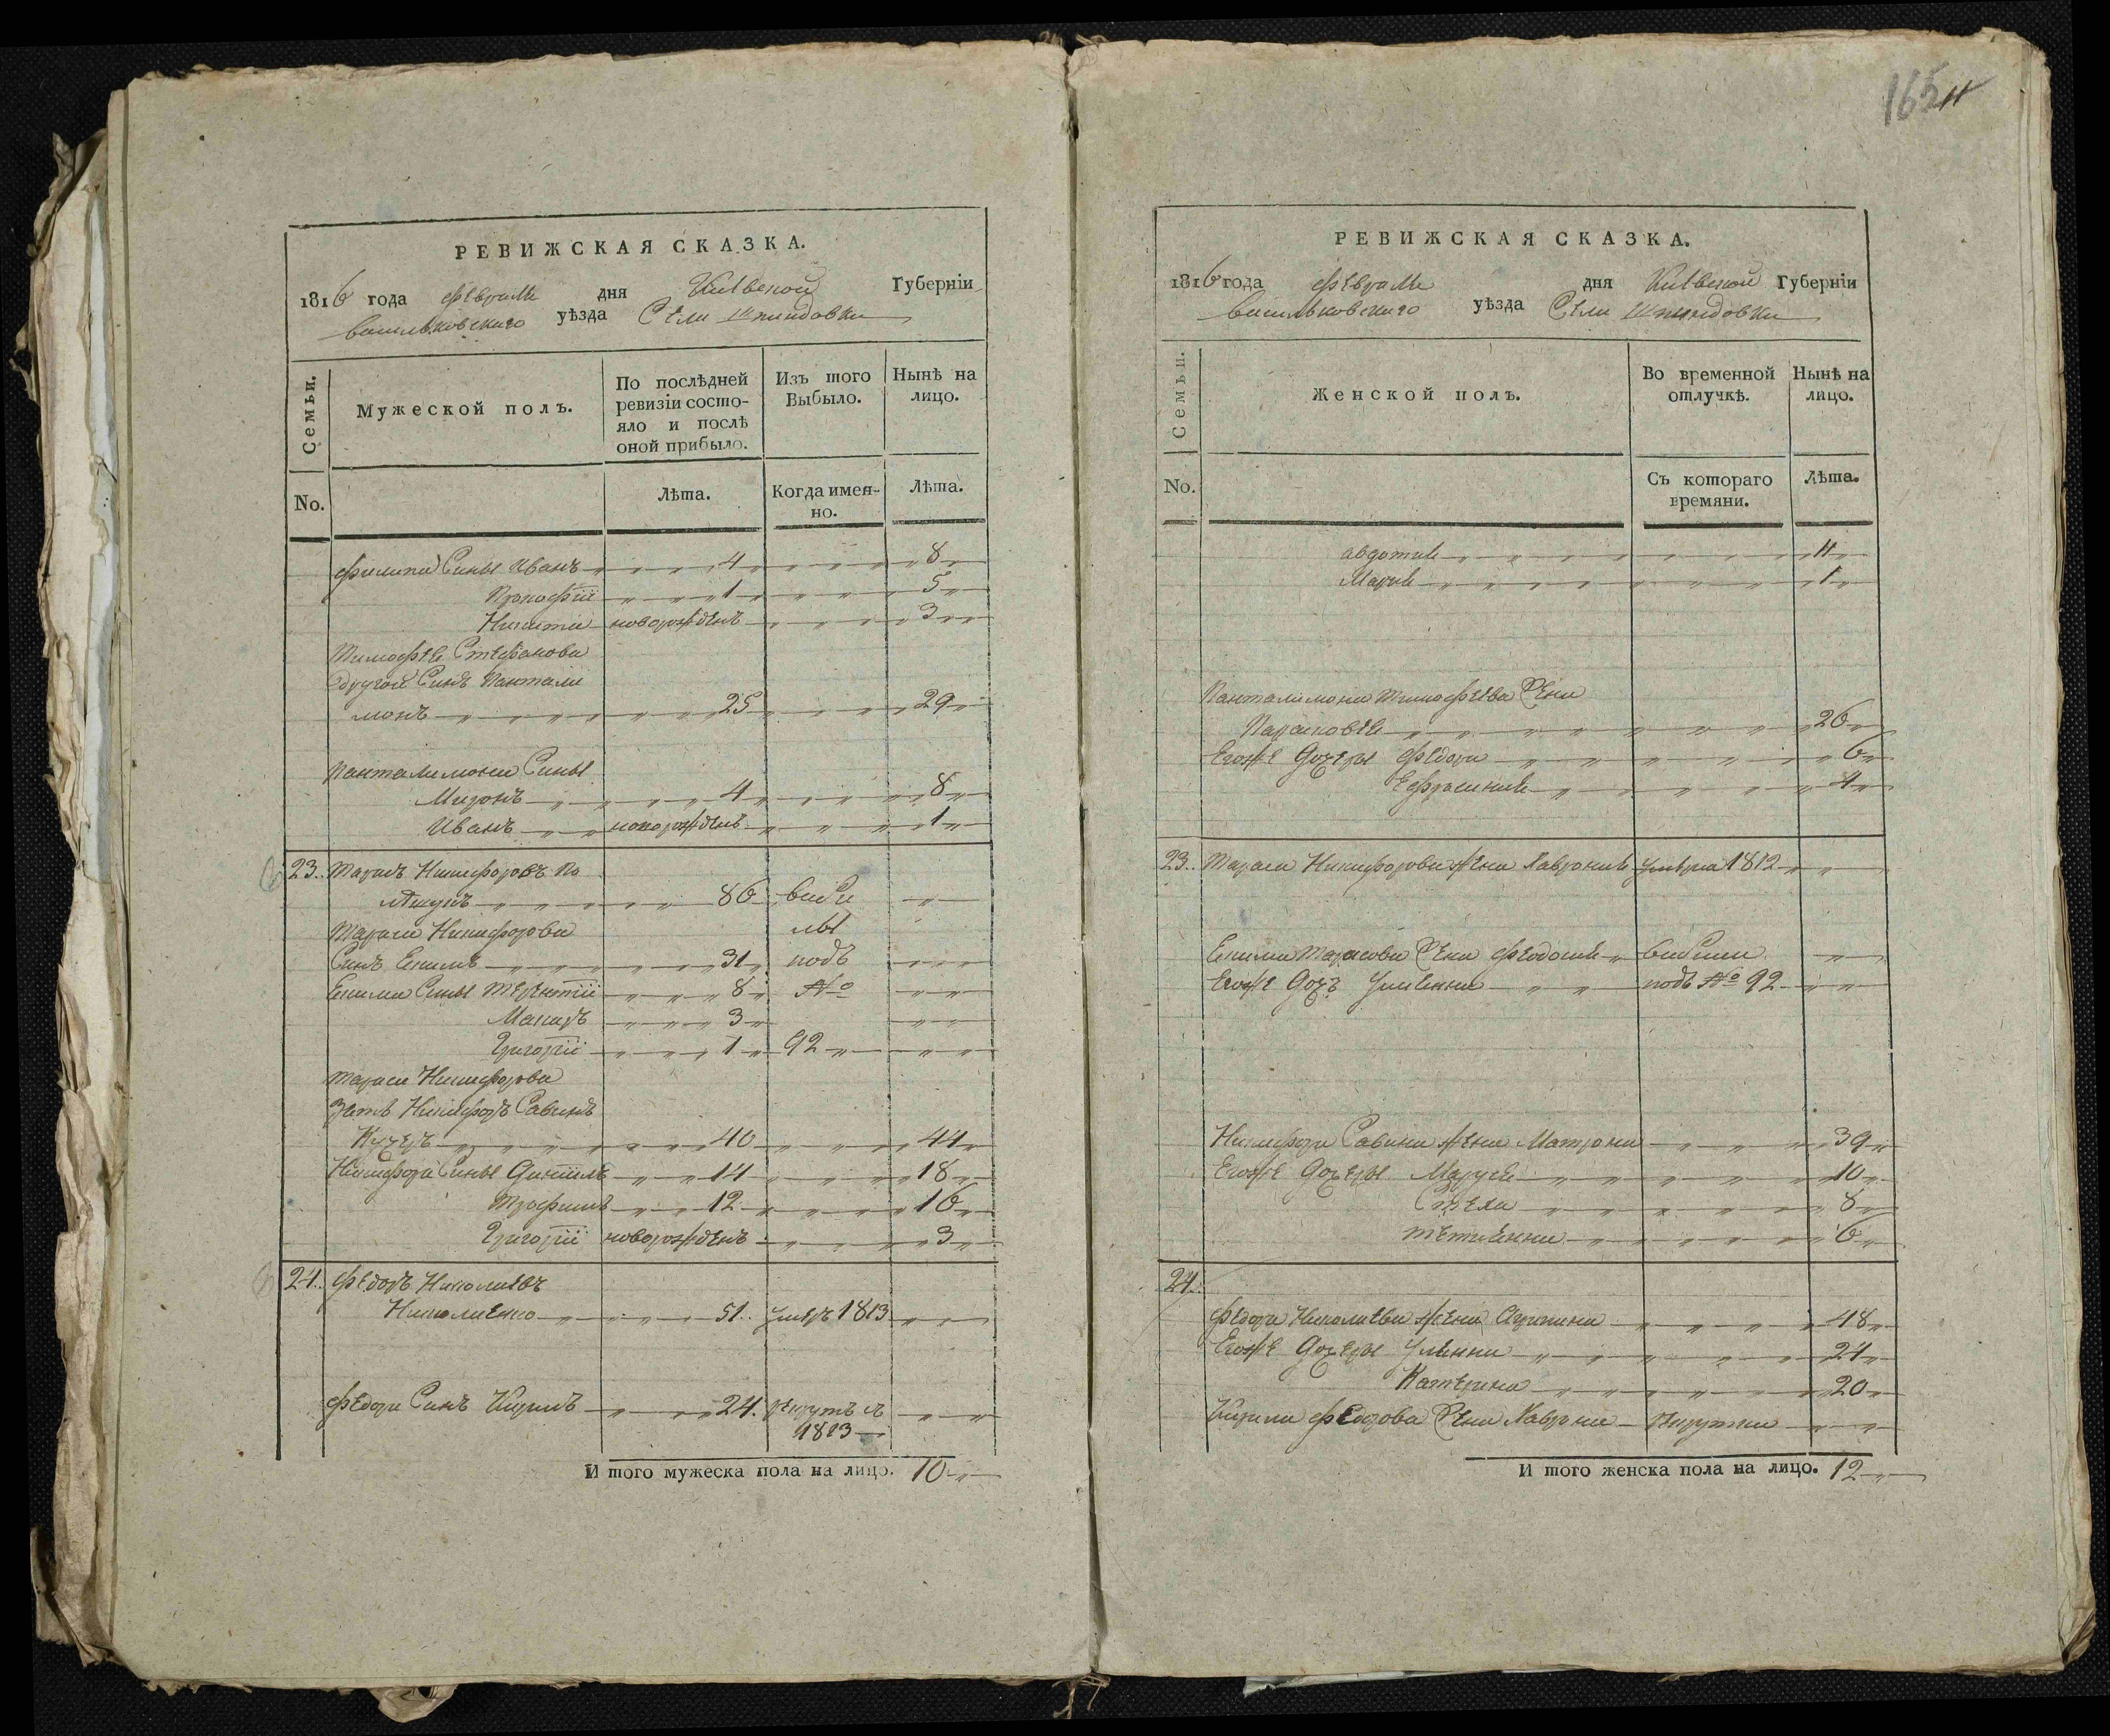 165
РЕВИЖСКАЯ СКАЗКА.
1816 года февраля дня Киевской Губерніи
Васильковского уѣзда Села Шпиндовки
Семьи.
Мужеской полъ.
По послѣдней ревизіи состояло и послѣ оной прибыло.
Изъ того Выбыло.
Нынѣ на лицо.
No.
Лѣта.
Когда имен-
но.
Лѣта.
Филипа Сины Иванъ 4 8
Прокофій 1 5
Никита новорожденъ 3
Тимофея Стефанова
другой Синъ Пантели
монъ 25 29
Панталимона Сины
Миронъ 4 8
Иванъ новорожденъ 1
23. Тарасъ Никифоровъ По
86 выбы
Тараса Никифорова лы
Синъ Екимъ 31 подъ
Екима Сины Терентій 8 №
Макаръ 3
Григорій 1 92
Тараса Никифорова
Зять Никифоръ Савинъ
Кучеръ 40 44
Никифора Сины Даніилъ 14 18
Трофимъ 12 16
Григорій новорожденъ 3
24. Федоръ Николаевъ
Николаенко 51. умеръ 1813
Федора Синъ Кирилъ 24. рекрутъ въ
1813
И того мужеска пола на лицо. 10
РЕВИЖСКАЯ СКАЗКА.
1816 года февраля дня Киевской Губерніи
Васильковского уѣзда Села Шпиндовки
Семьи.
Женской полъ.
Во временной отлучкѣ.
Нынѣ на лицо.
No.
Съ котораго времяни.
Лѣта.
Авдотия 11
Мария 1
Панталимона Тимофеева Жена
Парасковея 26
Егоже дочеры Федора 6
Ефросиния 4
23. Тараса Никифорова жена Лаврения умерла 1812
Екима Тарасова Жена Феодосия выбыли
Егоже дочь Улиянна подъ № 92
Никифора Савина жена Матрона 39
Егоже дочеры Маруся 10
8
Тетиянна 6
24.
Федора Николаева жена Агрипина 48
Егоже дочеры Улянна 24
Катерина 20
Кирила Федорова Жена рекрутка
И того женска пола на лицо. 12